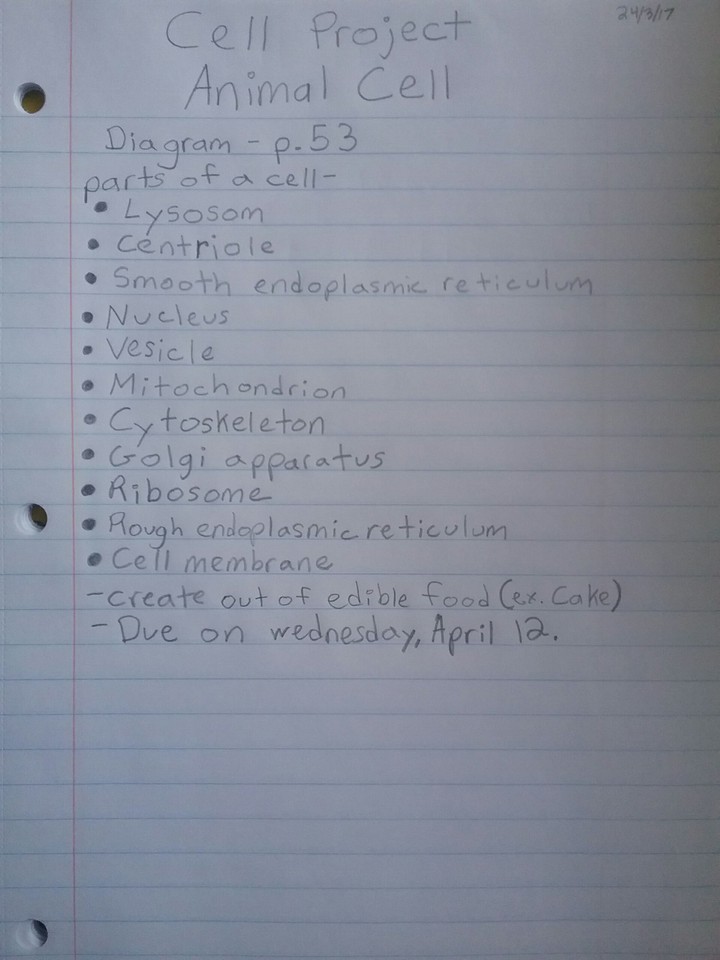 24/3/17
Cell Project
Animal Cell
Diagram - p.53
parts of a cell-
• Lysosom
• Centriole
• Smooth endoplasmic reticulum
• Nucleus
• Vesicle
• Mitochondrion
• Cytoskeleton
• Golgi apparatus
• Ribosome
• Rough endoplasmic reticulum
• Cell membrane
-create out of edible food (ex. Cake)
- Due on wednesday, April 12.